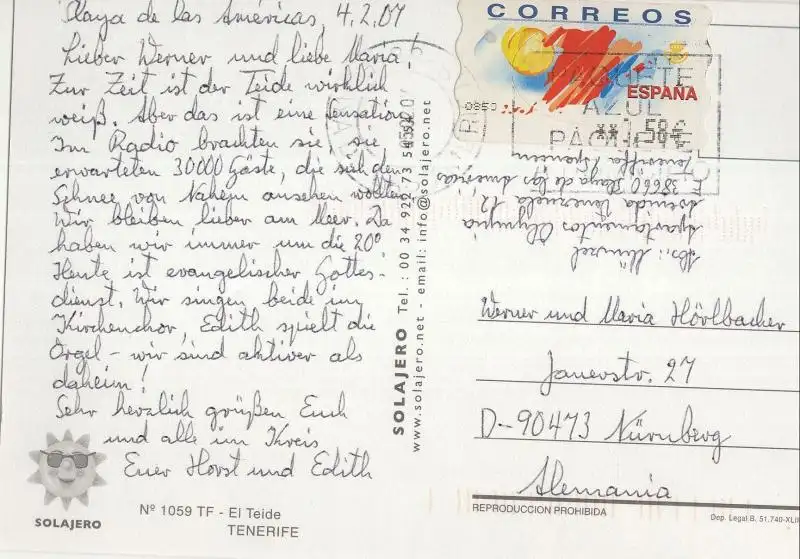 Playa de las Américas, 4.2.07
Lieber Werner und liebe Maria!
Zur Zeit ist der Teide wirklich
weiß. Aber das ist eine Sensation!
Im Radio brachten sie, sie
erwarteten 30000 Gäste, die sich den
Schnee von Nahem ansehen wollten.
Wir bleiben lieber am Meer. Da
haben wir immer um die 20°
Heute ist evangelischer Gottes-
dienst. Wir singen beide im
Kirchenchor, Edith spielt die
Orgel - wir sind aktiver als
daheim!
Sehr herzlich grüßen Euch
und alle im Kreis
Euer Horst und Edith
SOLAJERO
Nº 1059 TF - El Teide
TENERIFE
SOLAJERO Tel.: 00 34 922 73
www.solajero.net - email: info@solajero.net
CORREOS
ESPAÑA
0850
**1,58€
PAQUETE
AZUL
PAQUETE
Abs.: Münzel
Apartamentos Olympia
Avenida Venezuela 12
E 38660 Playa de las Américas
Teneriffa Spanien
Werner und Maria Hörlbacher
Janerstr. 27
D-90473 Nürnberg
Alemania
REPRODUCCION PROHIBIDA
Dep. Legal B. 51.740-XLII